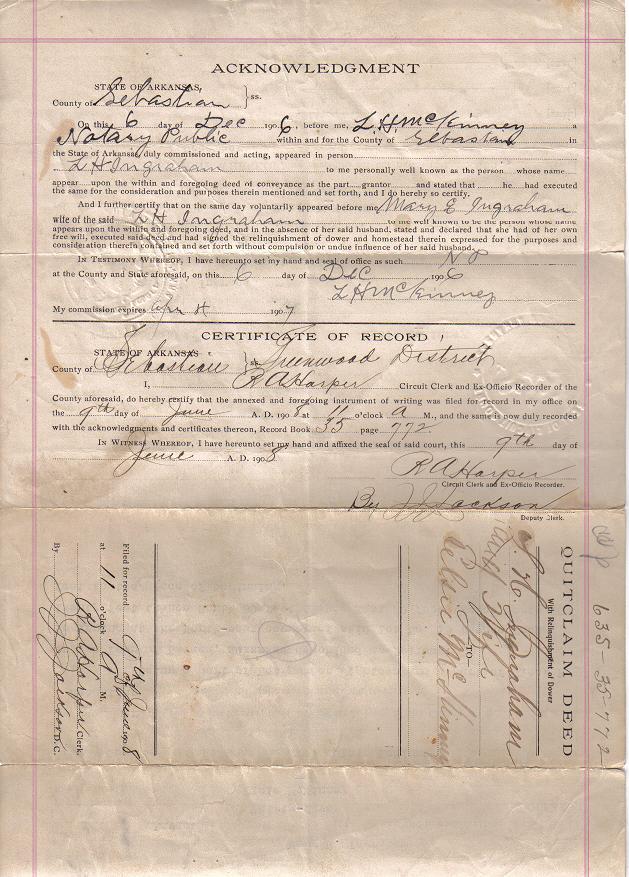 ACKNOWLEDGMENT
STATE OF ARKANSAS,
County of Sebastian } ss.
On this 6 day of Dec 1906, before me, L.H. McKinney a
Notary Public within and for the County of Sebastian
the State of Arkansas, duly commissioned and acting, appeared in person
L H Ingraham to me personally well known as the person whose name
appear upon the within and foregoing deed of conveyance as the part grantor and stated that he had executed
the same for the consideration and purposes therein mentioned and set forth, and I do hereby so certify.
And I further certify that on the same day voluntarily appeared before me Mary E Ingraham
wife of the said L H Ingraham to me well known to be the person whose name
appears upon the within and foregoing deed, and in the absence of her said husband, stated and declared that she had of her own
free will, executed said deed and had signed the relinquishment of dower and homestead therein expressed for the purposes and
consideration therein contained and set forth without compulsion or undue influence of her said husband.
IN TESTIMONY WHEREOF, I have hereunto set my hand and seal of office as such N P
at the County and State aforesaid, on this 6 day of Dec 1906
L H McKinney
My commission expires Apr 4 1907
CERTIFICATE OF RECORD
STATE OF ARKANSAS
County of Sebastian } ss. Greenwood District
I, R A Harper Circuit Clerk and Ex-Officio Recorder of the
County aforesaid, do hereby certify that the annexed and foregoing instrument of writing was filed for record in my office on
the 9th day of June A. D. 1908 at 11 o'clock A M., and the same is now duly recorded
with the acknowledgments and certificates thereon, Record Book 35 page 772
IN WITNESS WHEREOF, I have hereunto set my hand and affixed the seal of said court, this 9th day of
June A. D. 1908
R A Harper
Circuit Clerk and Ex-Officio Recorder.
By J Jackson
Deputy Clerk.
635-35-772
QUITCLAIM DEED
With Relinquishment of Dower
L. H. Ingraham
TO
McKinney
Filed for record 9th
of June 1908
at 11 o'clock A M.
R A Harper Clerk.
By J Jackson D. C.